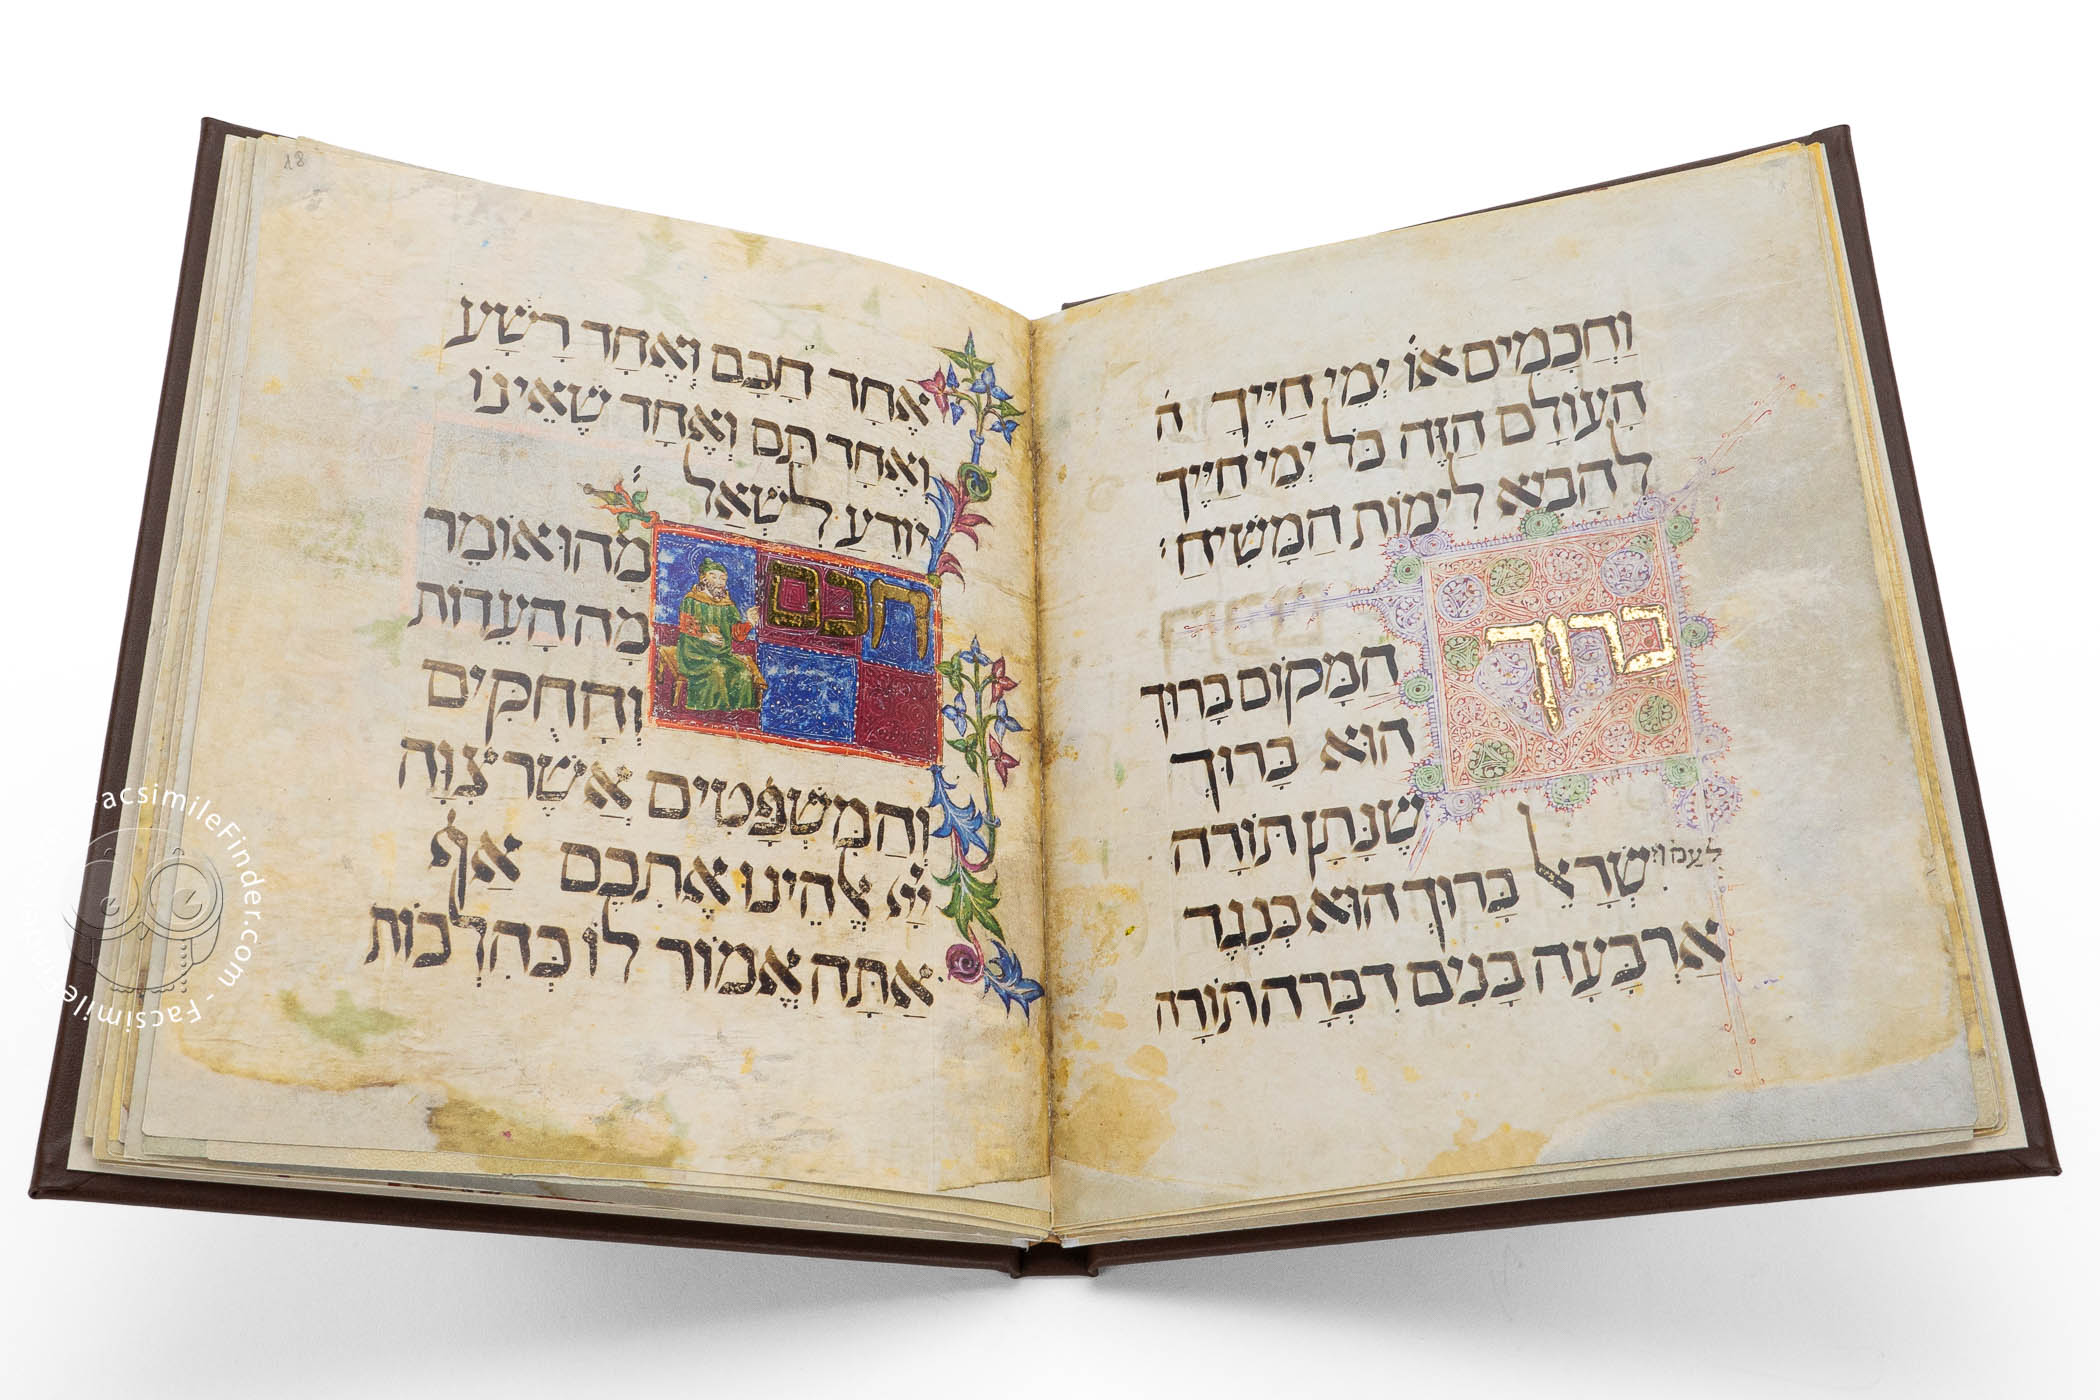 וַחֲכָמִים אוֹ יְמֵי חַיֶּיךָ הֹ
הָעוֹלָם הַזֶּה כֹּל יְמֵי חַיֶּיךָ
לְהָבִיא לִימוֹת הַמָּשִׁיחַ׃
ברוך
הַמָּקוֹם בָּרוּךְ
הוּא בָּרוּךְ
שֶׁנָּתַן תּוֹרָה
לעמו יִשְׂרָאֵל בָּרוּךְ הוּא כְּנֶגֶד
אַרְבָּעָה בָנִים דִּבְּרָה תּוֹרָה
18
אֶחָד חָכָם וְאֶחָד רָשָׁע
וְאֶחָד תָּם וְאֶחָד שֶׁאֵינוֹ
יוֹדֵעַ לִשְׁאַל
חכם
מַהוּ אוֹמֵר
מָה הָעֵדוֹת
וְהַחֻקִּים
וְהַמִּשְׁפָּטִים אֲשֶׁר צִוָּה
יְיָ אֱלֹהֵינוּ אֶתְכֶם אַף
אַתָּה אֱמוֹר לוֹ כְּהִלְכוֹת
FacsimileFinder.com - Facsimile